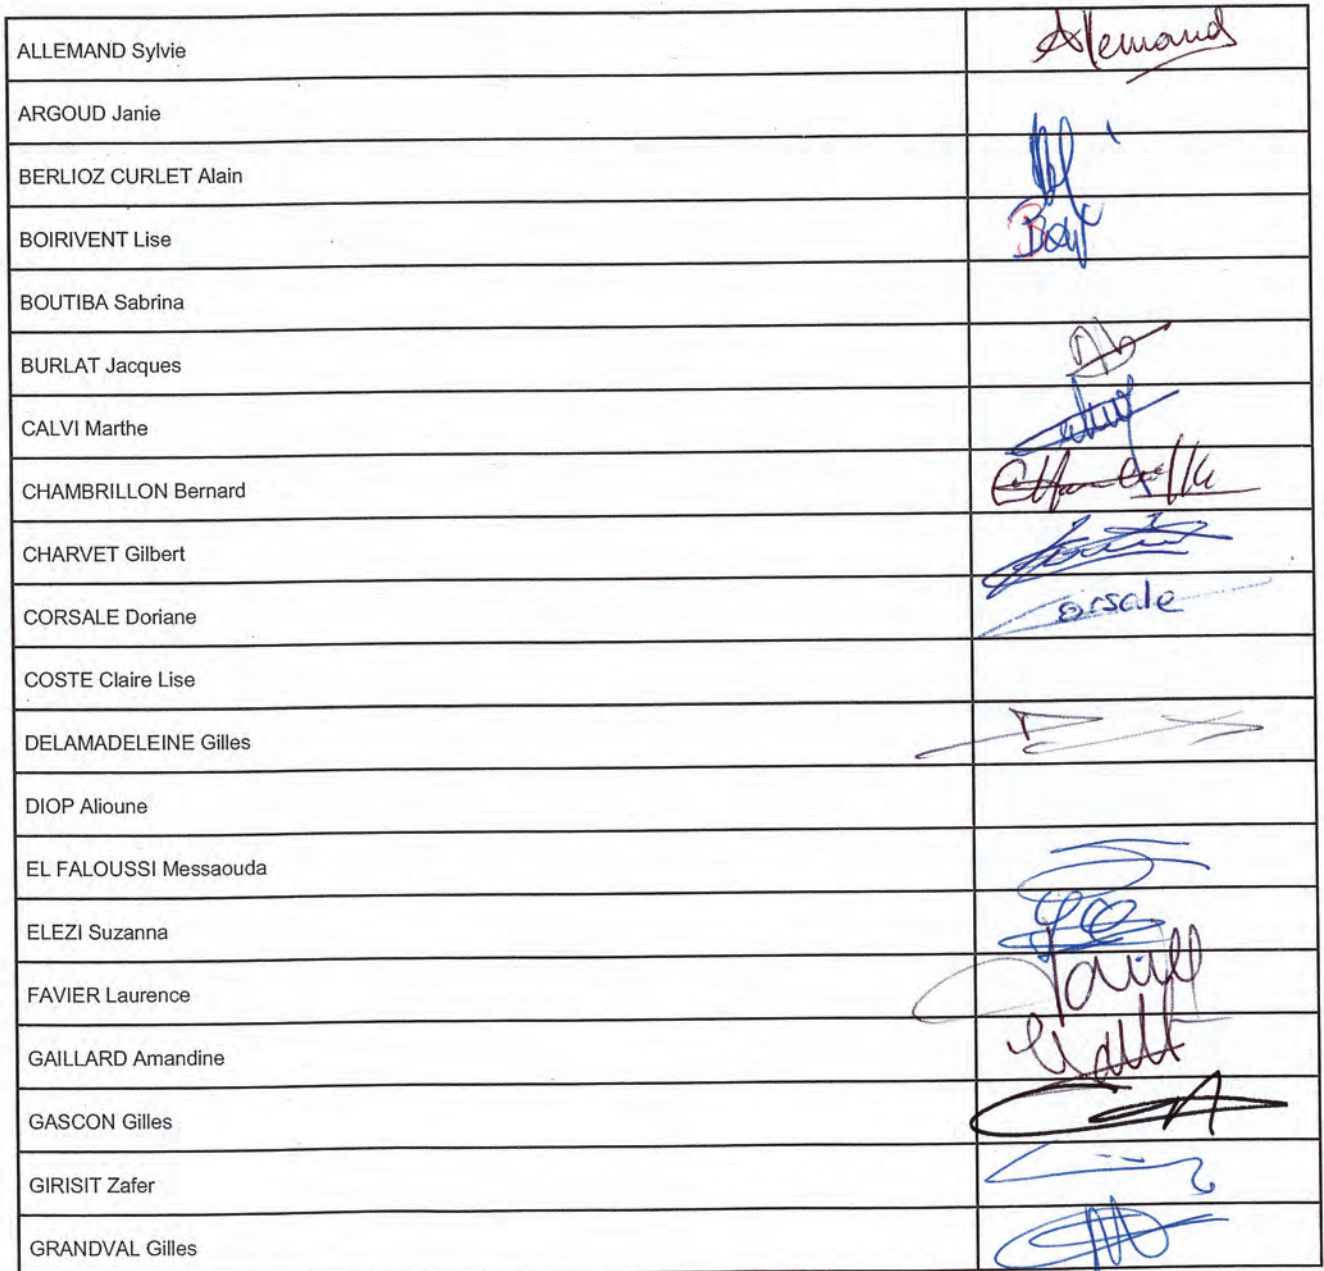 ALLEMAND Sylvie Allemand
ARGOUD Janie
BERLIOZ CURLET Alain
BOIRIVENT Lise
BOUTIBA Sabrina
BURLAT Jacques
CALVI Marthe
CHAMBRILLON Bernard
CHARVET Gilbert
CORSALE Doriane Corsale
COSTE Claire Lise
DELAMADELEINE Gilles
DIOP Alioune
EL FALOUSSI Messaouda
ELEZI Suzanna
FAVIER Laurence
GAILLARD Amandine
GASCON Gilles
GIRISIT Zafer
GRANDVAL Gilles